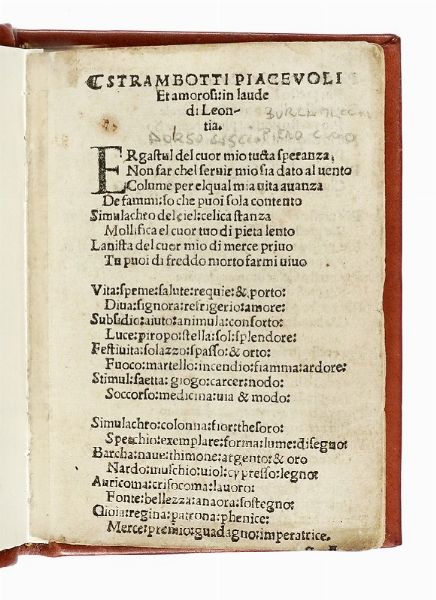 ❡ STRAMBOTTI PIACEVOLI
Et amorosi: in laude
di Leon-
tia.
ERgastul del cuor mio tucta speranza;
Non far chel seruir mio sia dato al uento
Colume per elqual mia uita auanza
De fammi: so che puoi sola contento
Simulachro del ciel: celica stanza
Mollifica el cuor tuo di pieta lento
Lanista del cuor mio di merce priuo
Tu puoi di freddo morto farmi uiuo
Vita: speme: salute: requie: & porto:
Diua: signora: refrigerio: amore:
Subsidio: aiuto: animula: conforto:
Luce: piropo: stella: sol: splendore:
Festiuita: solazzo: spasso: & orto:
Fuoco: martello: incendio: fiamma: ardore:
Stimul: saetta: giogo: carcer: nodo:
Soccorso: medicina: uia & modo:
Simulachro: colonna: fior: thesoro:
Spechio: exemplare: forma: lume: disegno:
Barcha: naue: thimone: argento: & oro
Nardo: muschio: uiol: cypresso: legno:
Auricoma: crisocoma: lauoro:
Fonte: bellezza: anaora: sostegno:
Gioia: regina: patrona: phenice:
Merce: premio: guadagno: imperatrice.